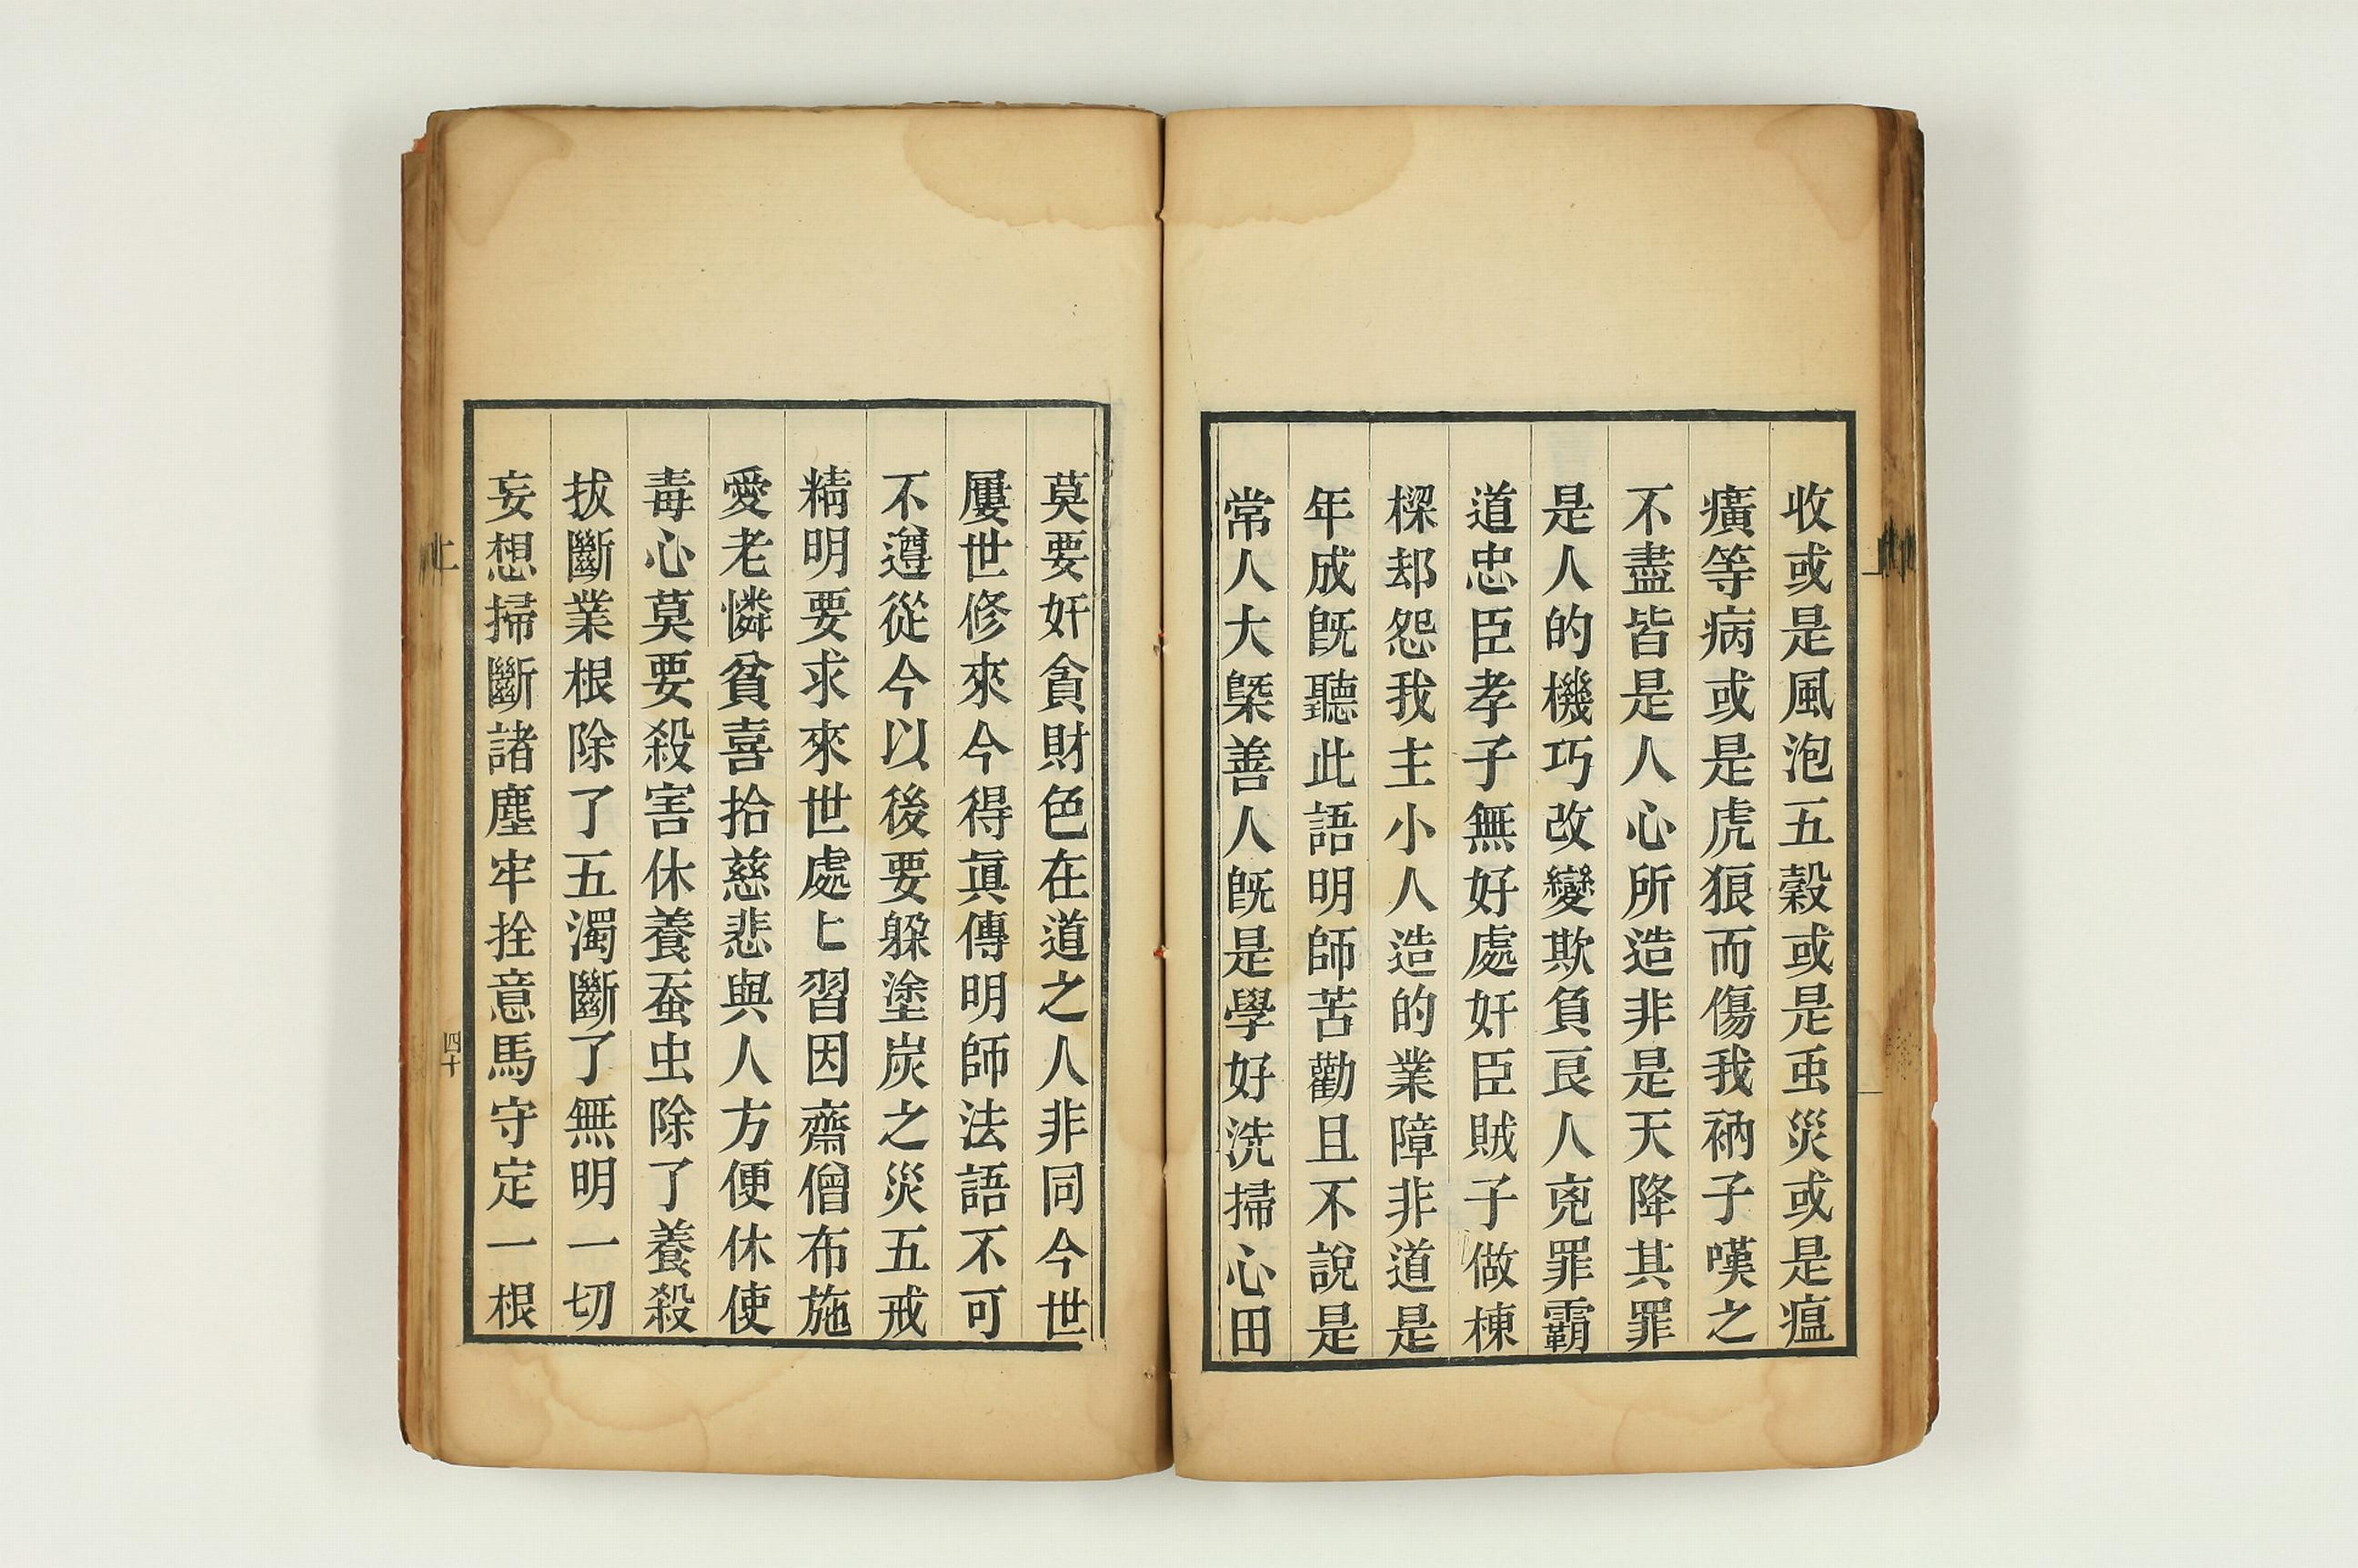 收或是風泡五穀或是䖝災或是瘟
癀等病或是虎狼而傷我衲子嘆之
不盡皆是人心所造非是天降其罪
是人的機巧改變欺負良人兇罪霸
道忠臣孝子無好處奸臣賊子做棟
樑却怨我主小人造的業障非道是
年成旣聽此語明師苦勸且不說是
常人大槩善人旣是學好洗掃心田
莫要奸貪財色在道之人非同今世
屢世修來今得眞傳明師法語不可
不遵從今以後要躲塗炭之災五戒
精明要求來世處〻習因齋僧布施
愛老憐貧喜拾慈悲與人方便休使
毒心莫要殺害休養蚕虫除了養殺
拔斷業根除了五濁斷了無明一切
妄想掃斷諸塵牢拴意馬守定一根
四十